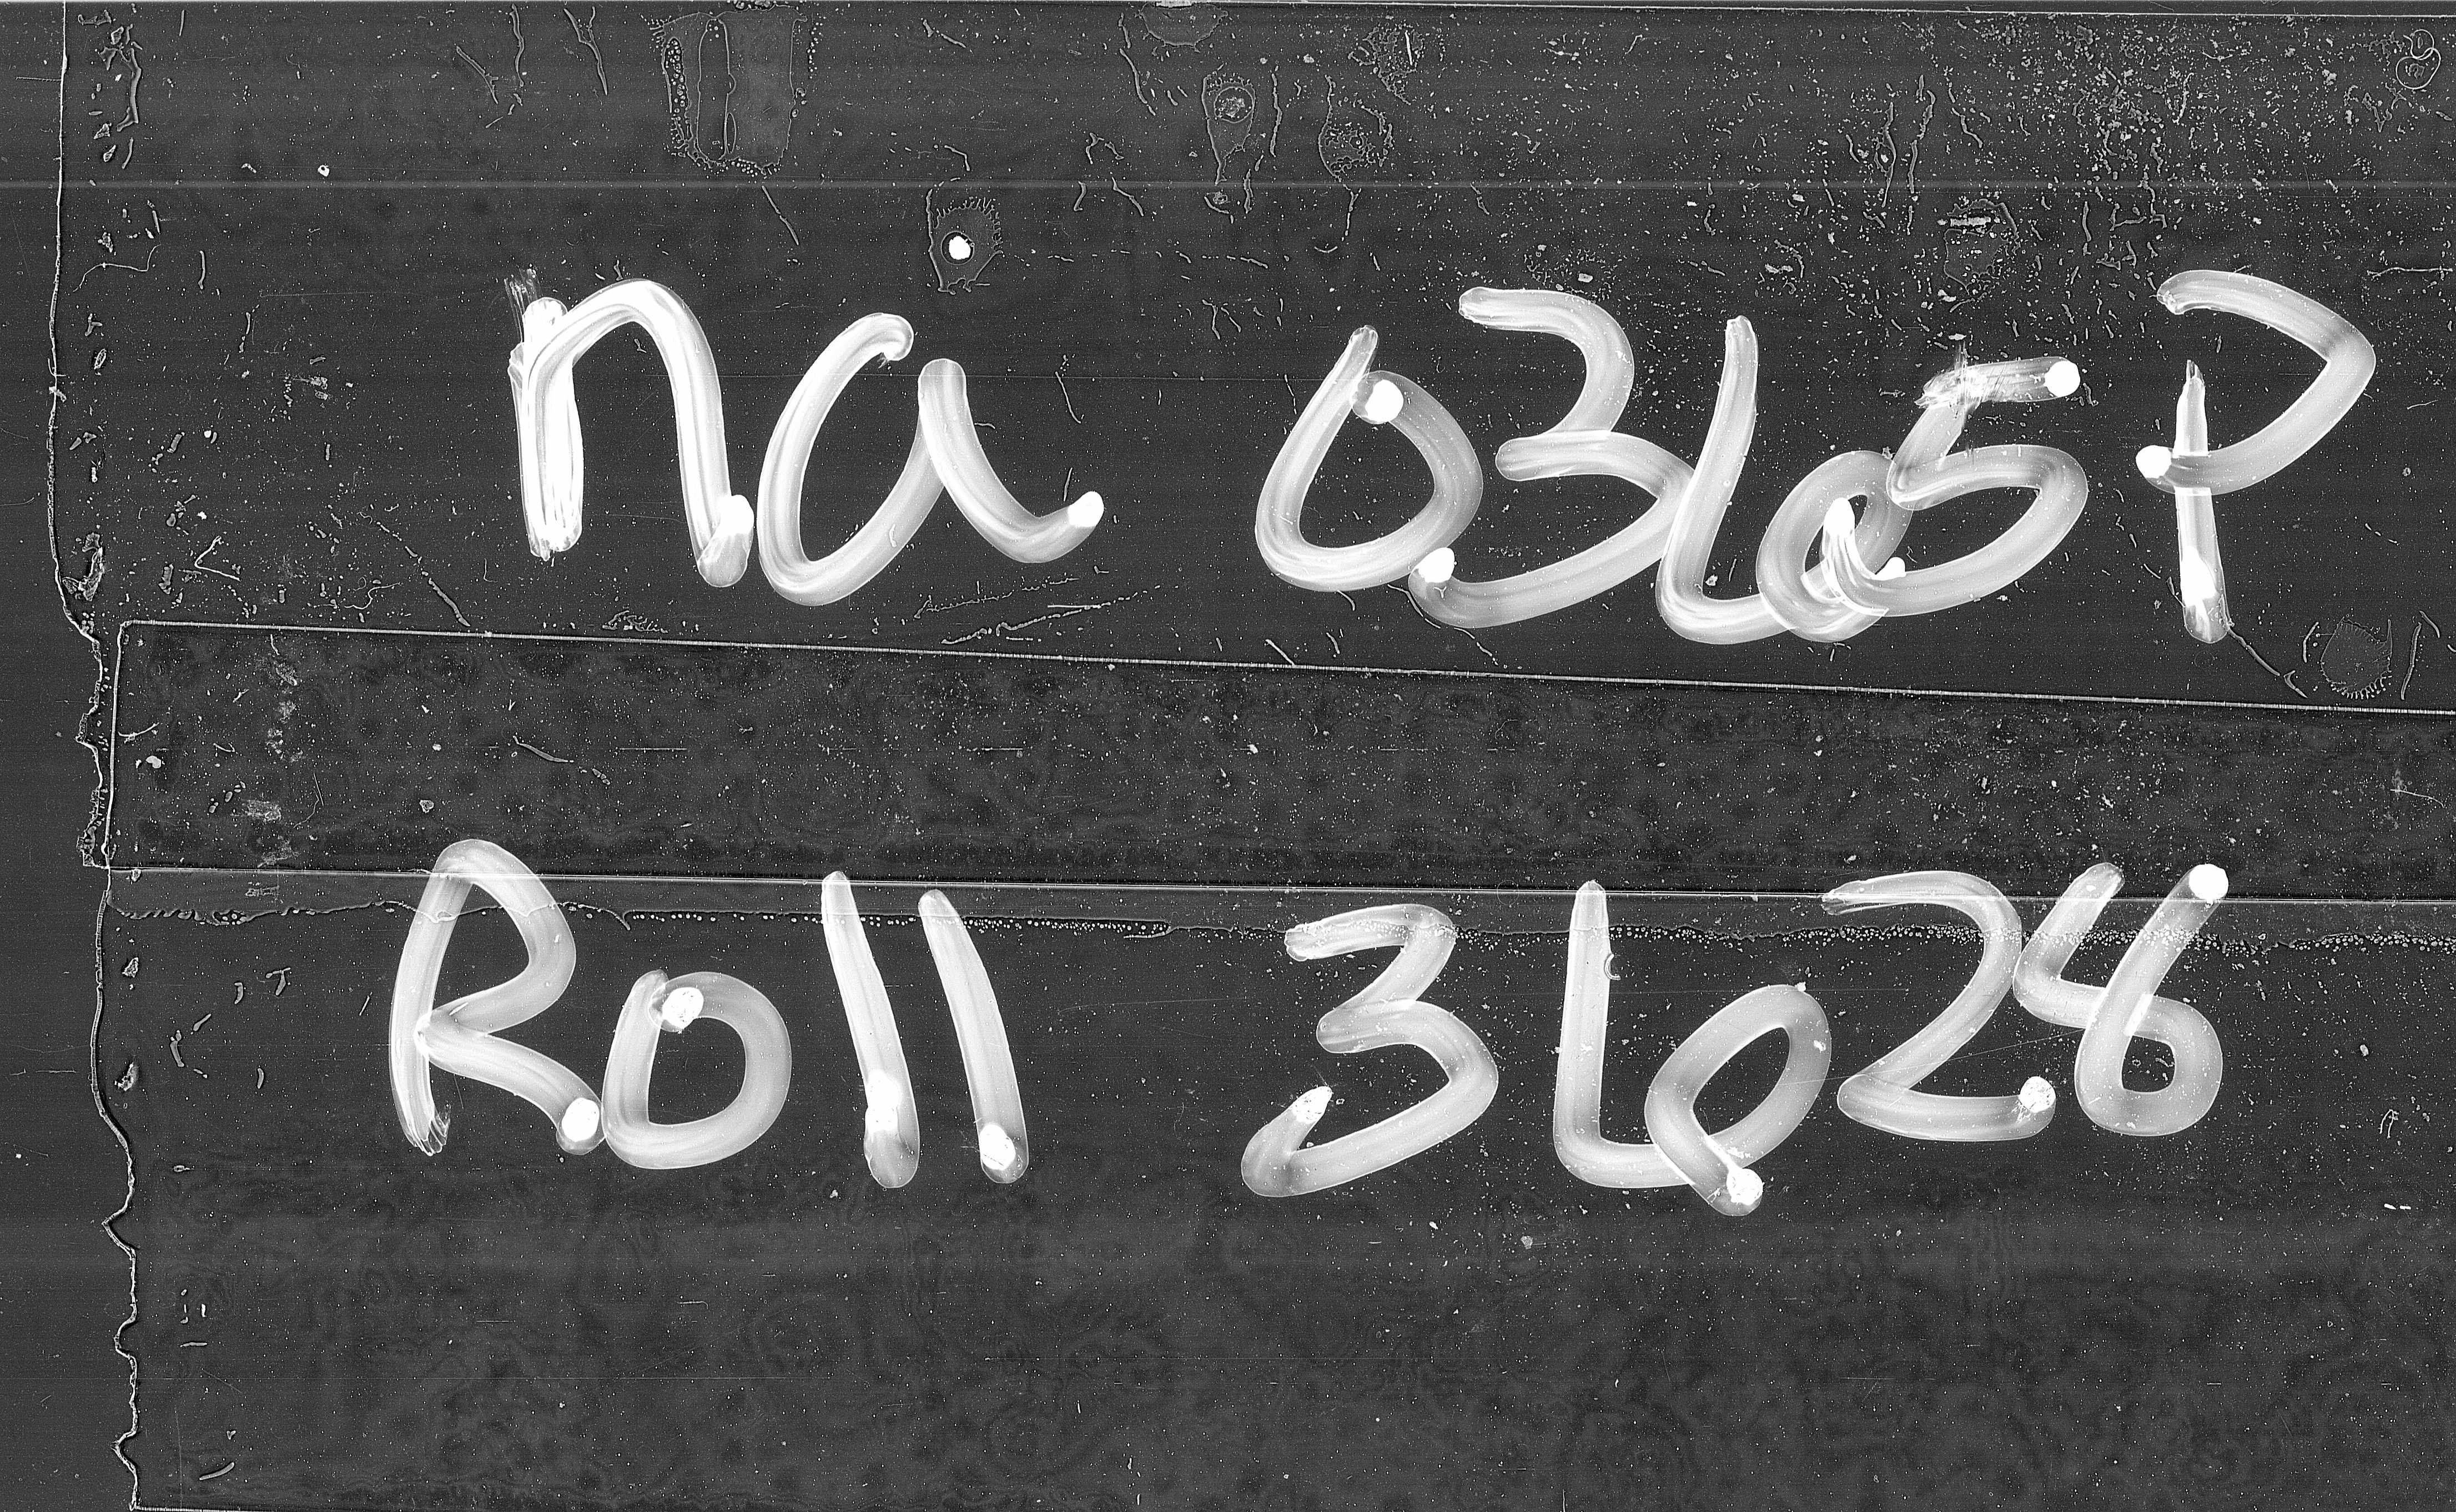 na 0365 P
Roll 3628